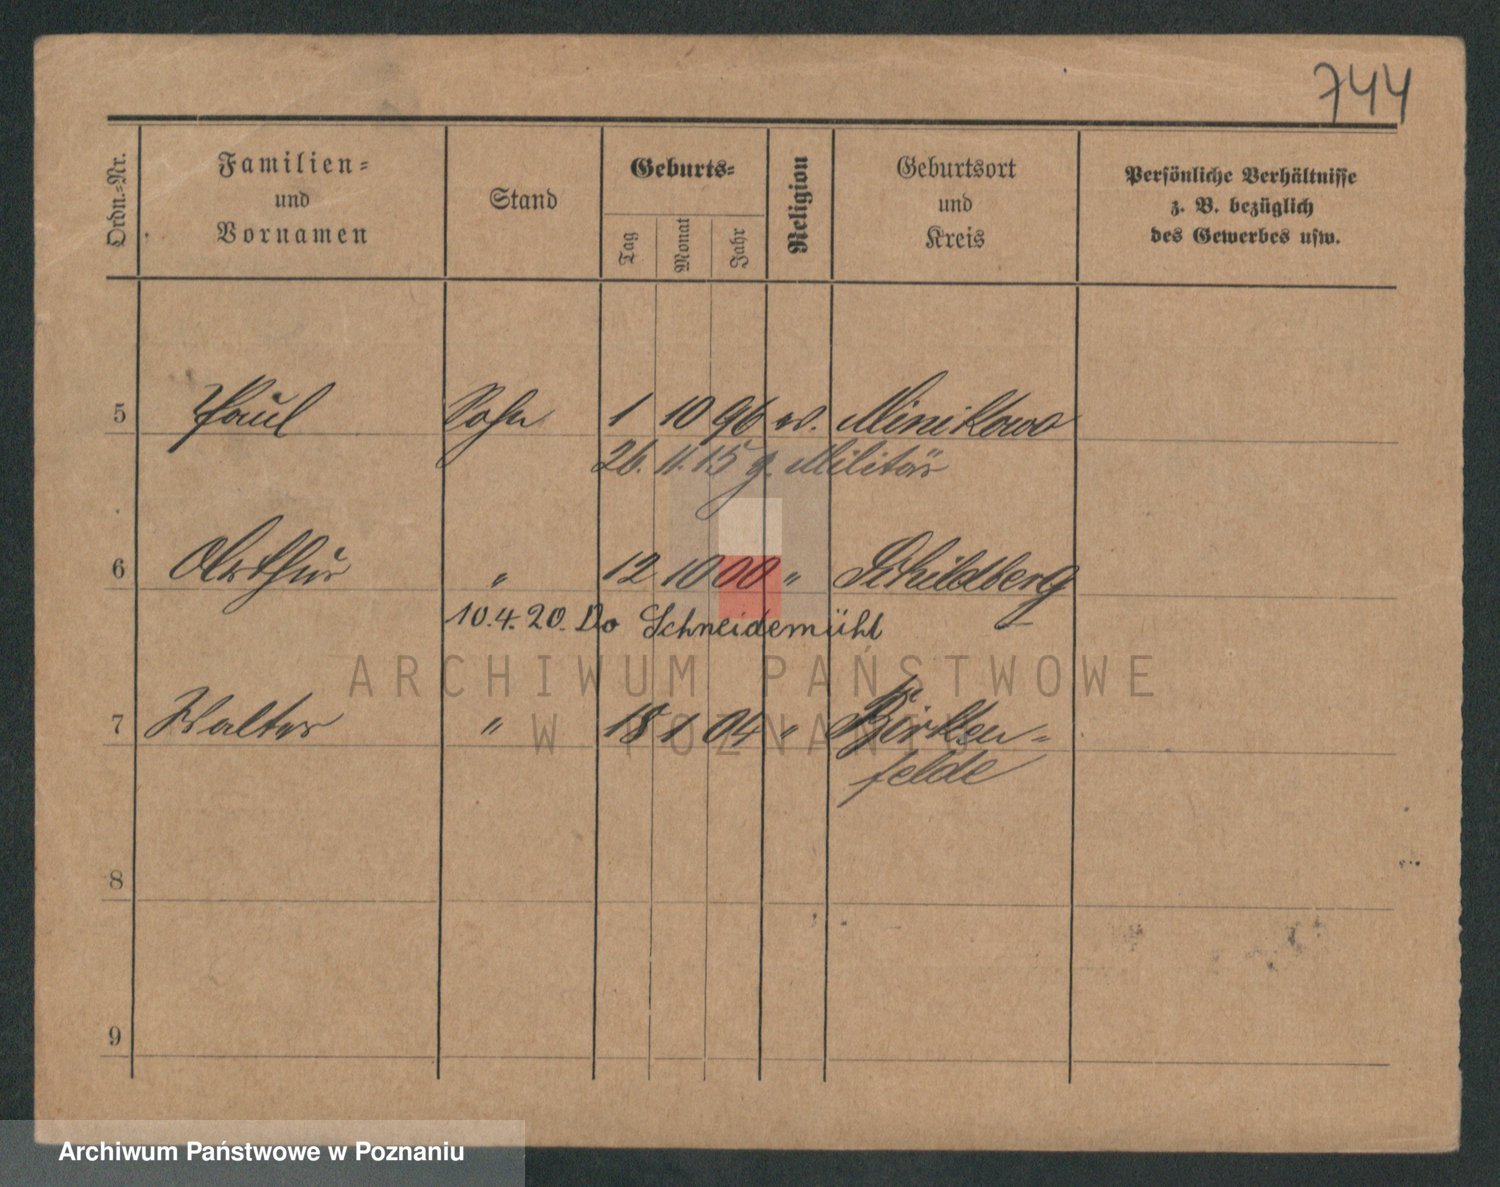 744
Ordn.-Nr.
Familien-
und
Vornamen
Stand
Geburts-
Tag
Monat
Jahr
Religion
Geburtsort
und
Kreis
Persönliche Verhältnisse
z. B. bezüglich
des Gewerbes usw.
5 Paul Sohn 1 10 96 ev. Minikowo
26. 11. 15 z. Militär
6 Arthur " 12 10 00 " Schildberg
10.4.20. Do Schneidemühl
7 Walter " 18 1 04 " Birken-
felde
8
9
ARCHIWUM PAŃSTWOWE
W POZNANIU
Archiwum Państwowe w Poznaniu